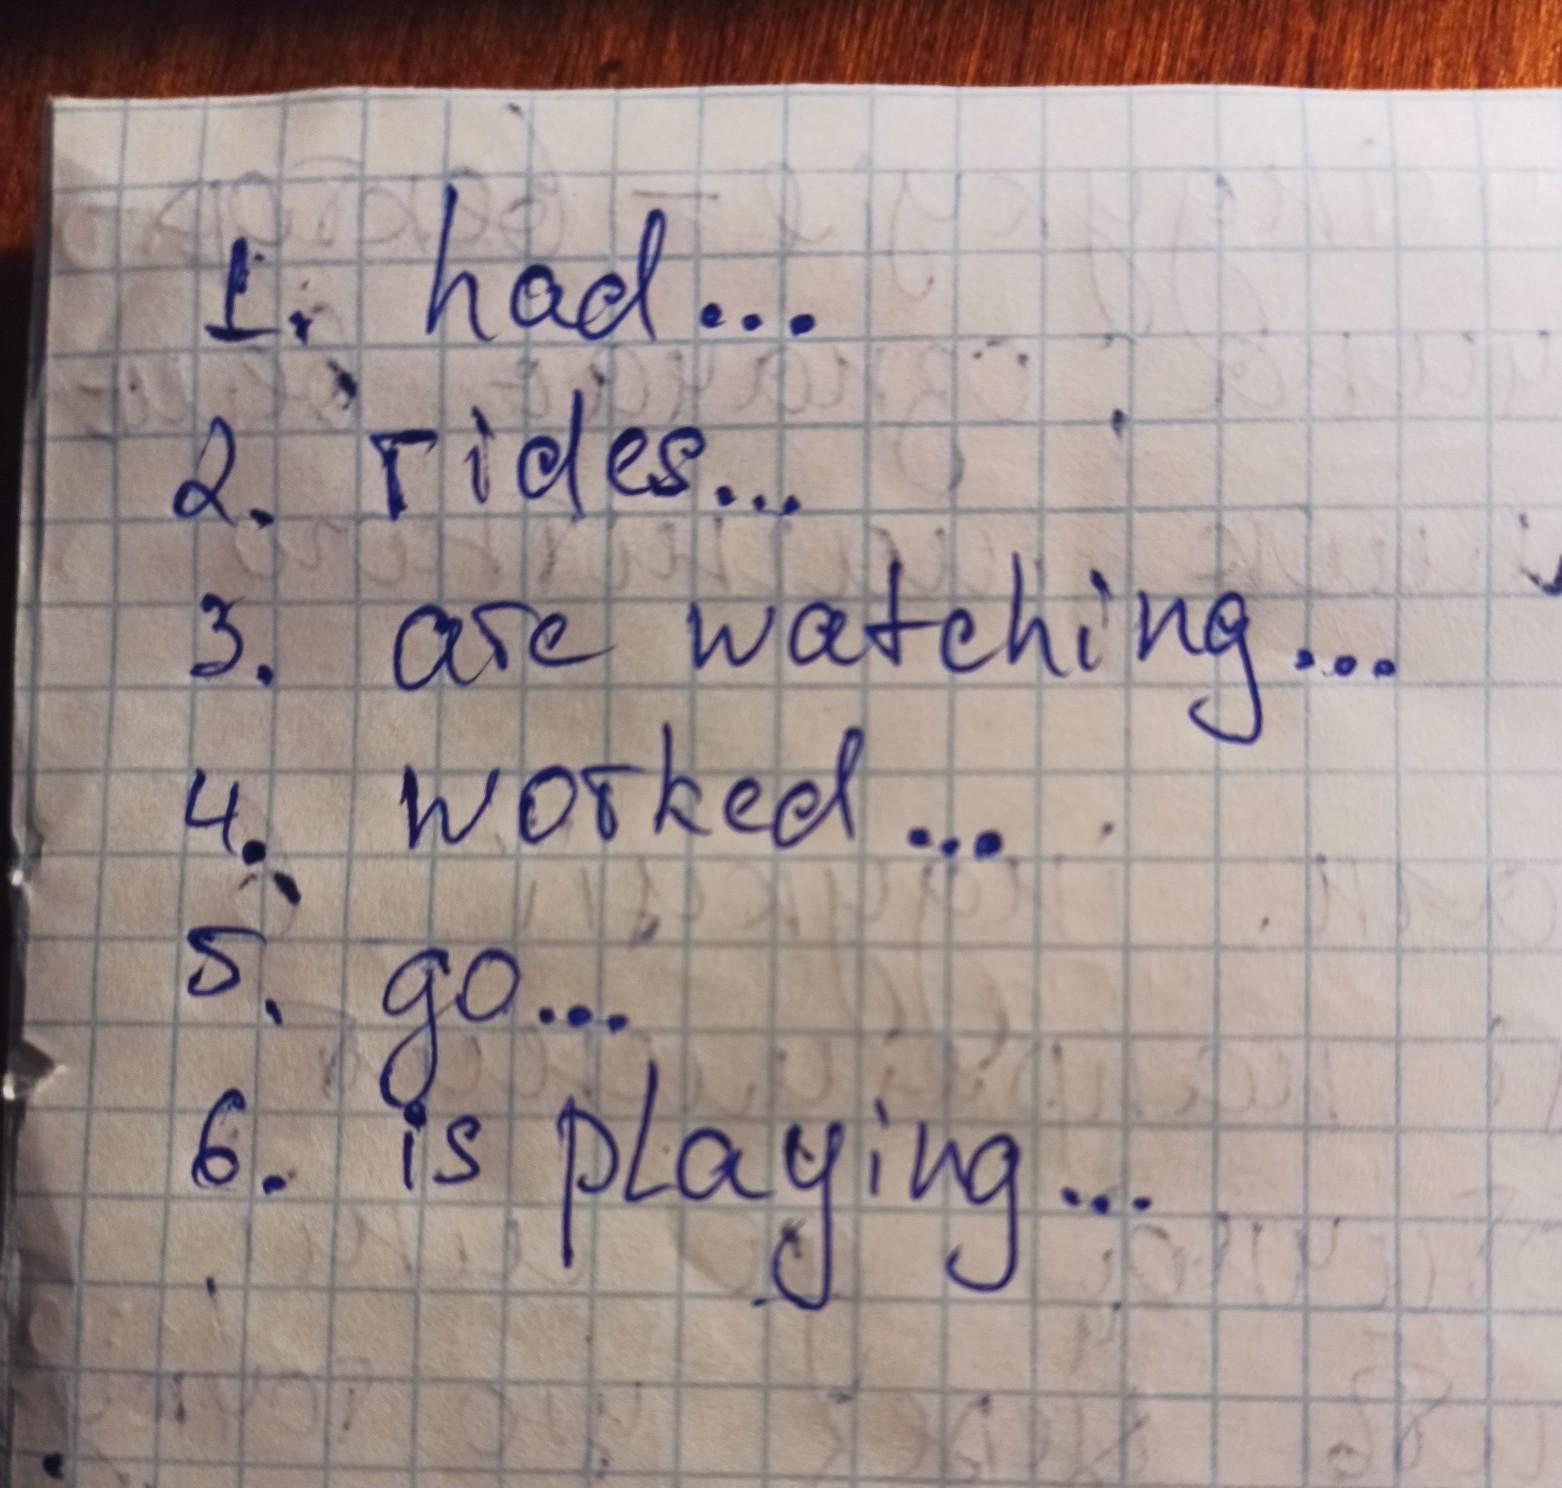 1. had...
2. rides...
3. are watching...
4. worked...
5. go...
6. is playing...